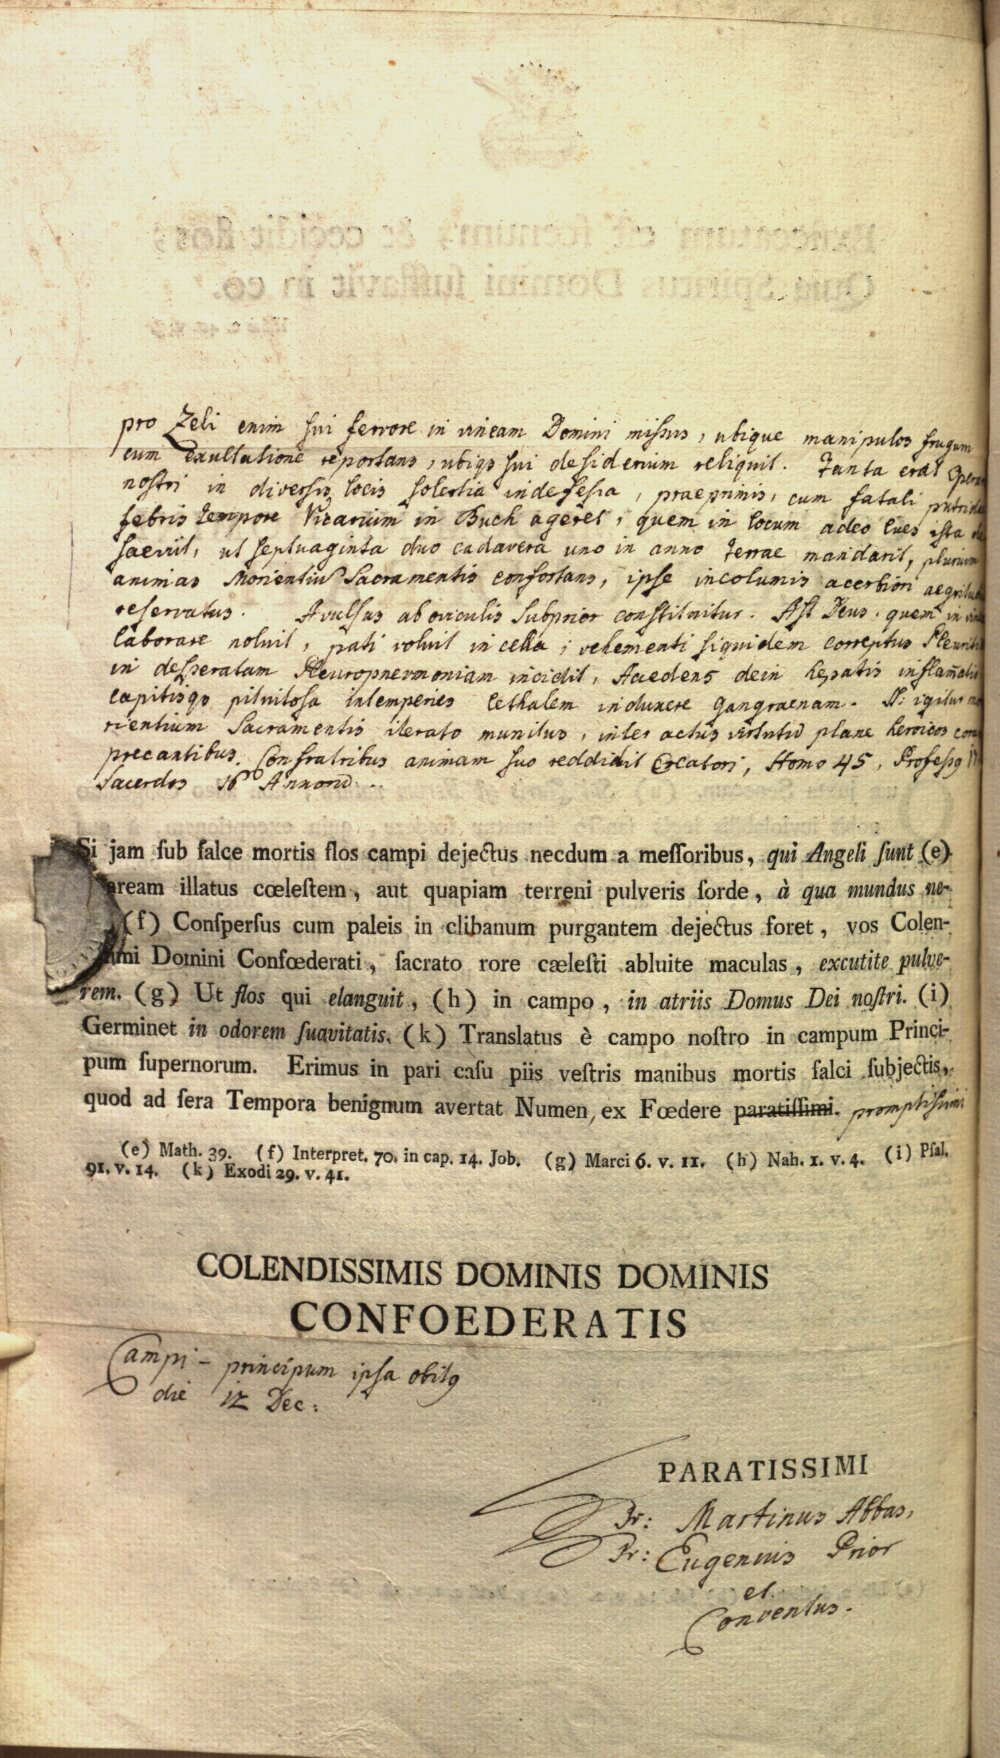 pro Zeli enim sui fervore in vineam Domini missus, ubique manipulos frugum
cum exultatione reportans, ubiqs sui desiderium reliquit. Tanta erat
nostri in diversis locis solertia indefessa, praeprimis, cum fatali
febris tempore Vicarium in Buch ageret, quem in locum adeo lues ista
saeviit, ut septuaginta duo cadavera uno in anno terrae mandarit, plurium
animas Morientiu Sacramentis confortans, ipse incolumis acerbiori
reservatus. Avulsus ab oviculis Subprior constituitur. Ast Deus, quem in
laborare voluit, pati voluit in cella, vehementi siquidem correptus
in desperatam Pleuropnevmoniam incidit, Accedens dein hepatis
capitisqs pituitosa intemperies lethalem induxere gangraenam. igitur
rientium Sacramentis iterato munitus, inter actus virtutu plane heroicos
precantibus Confratribus animam suo reddidit Creatori, Homo 45,
Sacerdos Annoru.
Si jam sub falce mortis flos campi dejectus necdum a messoribus, qui Angeli sunt (e)
aream illatus cœlestem, aut quapiam terreni pulveris sorde, à qua mundus ne-
(f) Conspersus cum paleis in clibanum purgantem dejectus foret, vos Colen-
mi Domini Confœderati, sacrato rore cælesti abluite maculas, excutite pulve-
rem. (g) Ut flos qui elanguit, (h) in campo, in atriis Domus Dei nostri. (i)
Germinet in odorem suavitatis. (k) Translatus è campo nostro in campum Princi-
pum supernorum. Erimus in pari casu piis vestris manibus mortis falci subjectis,
quod ad sera Tempora benignum avertat Numen, ex Fœdere paratissimi. promptissimi
(e) Math. 39. (f) Interpret. 70. in cap. 14. Job. (g) Marci 6. v. 11. (h) Nah. 1. v. 4. (i) Psal.
91. v. 14. (k) Exodi 29. v. 41.
COLENDISSIMIS DOMINIS DOMINIS
CONFOEDERATIS
Campi - principum ipsa obitq
die 12 Dec:
PARATISSIMI
Fr: Martinus Abbas,
Fr: Eugenius Prior
et
Conventus.